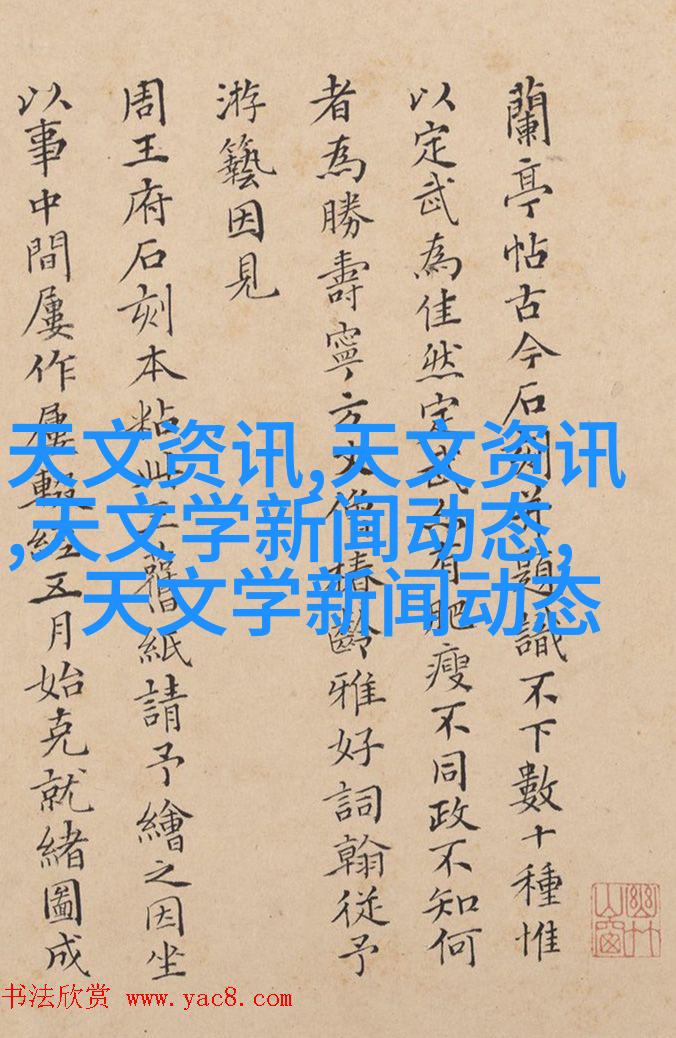 蘭亭帖古今石刻并題識不下數十種惟
以定武為佳然定武亦有肥瘦不同政不知何
者為勝壽寧方丈僧椿齡雅好詞翰從予
游藝因見
周王府石刻本粘此二舊紙請予繪之因坐
以事中間屢作屢輟經五月始克就緒圖成
幽竹山窗
天文资讯,天文资讯
,天文学新闻动态,
天文学新闻动态
书法欣赏 www.yac8.com